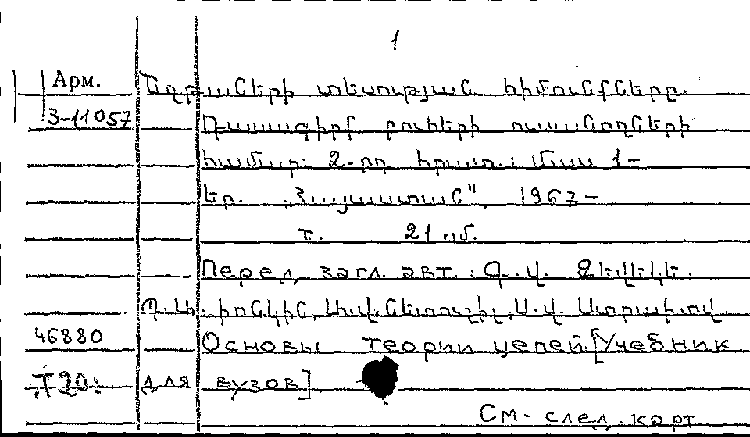 1
Арм. Եղթաների տեսության հիմունքները.
3-11057 Դասագիրք բուհերի ուսանողների
համար: 2-րդ հրատ.: Մաս 1-
Եր. „Հայաստան", 1967-
т. 21 սմ.
Перед загл. авт.: Գ. Վ. Զևեկե.
Պ. Ա. Իոնկին, Ա. Վ. Նետուշիլ, Ս. Վ. Ստրախով
46880 Основы теории цепей [Учебник
Т 20: для вузов]
См. след. карт